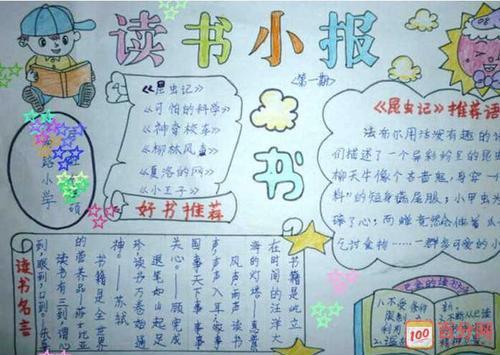 读书小报
(第一期)
《昆虫记》
《可怕的科学》
《神奇校车》
《柳林风声》
《夏洛的网》
《小王子》
好书推荐
小学
书
08
《昆虫记》推荐语
法布尔用活泼有趣的
们描述了一个异彩纷呈的昆
柳天牛像个吝啬鬼,身穿一
料”的短身燕尾服;小甲虫为
碎了心;而蝉竟然
乞讨食物……一群多可爱的小
读书名言
书籍是屹立
在时间的汪洋大
海的灯塔
风声雨声读书
声声声入耳家事
国事天下事事事
关心。——顾宪成
退笔如山未足
珍,读书万卷始通
神。——苏轼
书籍是全世界
的营养品——莎士比亚
读书有三到,谓心
到,眼到,口到——朱熹
100